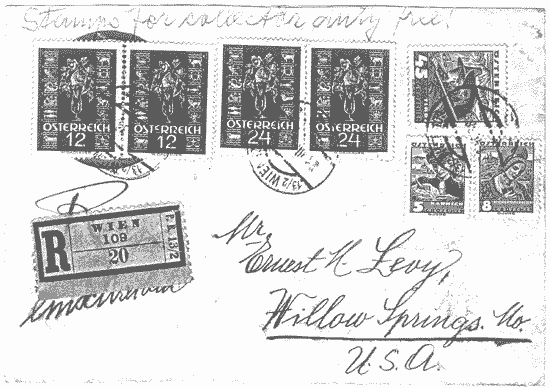 Stamps for collector duty free!
ÖSTERREICH
12
ÖSTERREICH
12
ÖSTERREICH
24
ÖSTERREICH
24
45
ÖSTERREICH
5
8
13/2 WIEN
R
WIEN
109
20
F.I. 13/2
Mr.
Ernest K Levy,
Willow Springs. Mo.
U.S.A.